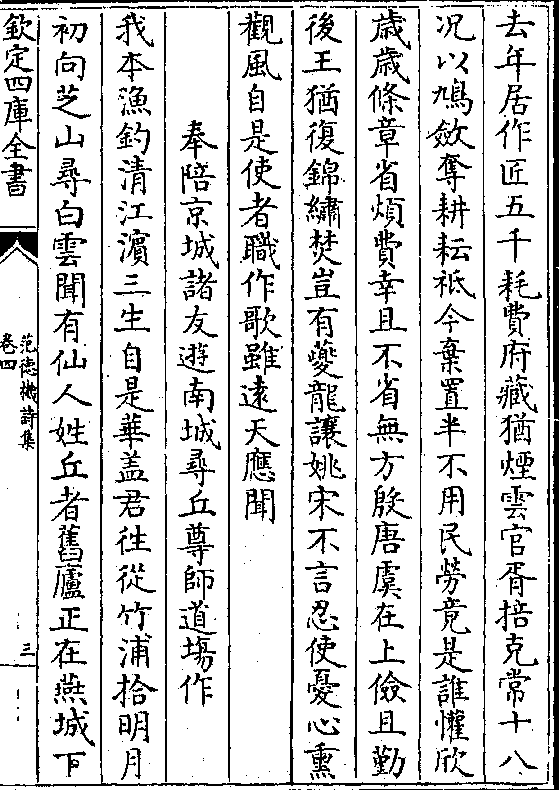 去年居作匠五千耗費府藏猶煙雲官胥掊克常十八
况以鳩斂奪耕耘祗今棄置半不用民勞竟是誰懽欣
歳歳條章省煩費幸且不省無方殷唐虞在上儉且勤
後王猶復錦繡焚豈有夔龍讓姚宋不言忍使憂心熏
觀風自是使者職作歌雖逺天應聞
奉陪京城諸友遊南城尋丘尊師道塲作
我本漁釣清江濵三生自是華盖君徃從竹浦拾明月
初向芝山尋白雲聞有仙人姓丘者舊廬正在燕城下
欽定四庫全書
范德機詩集
卷四
三